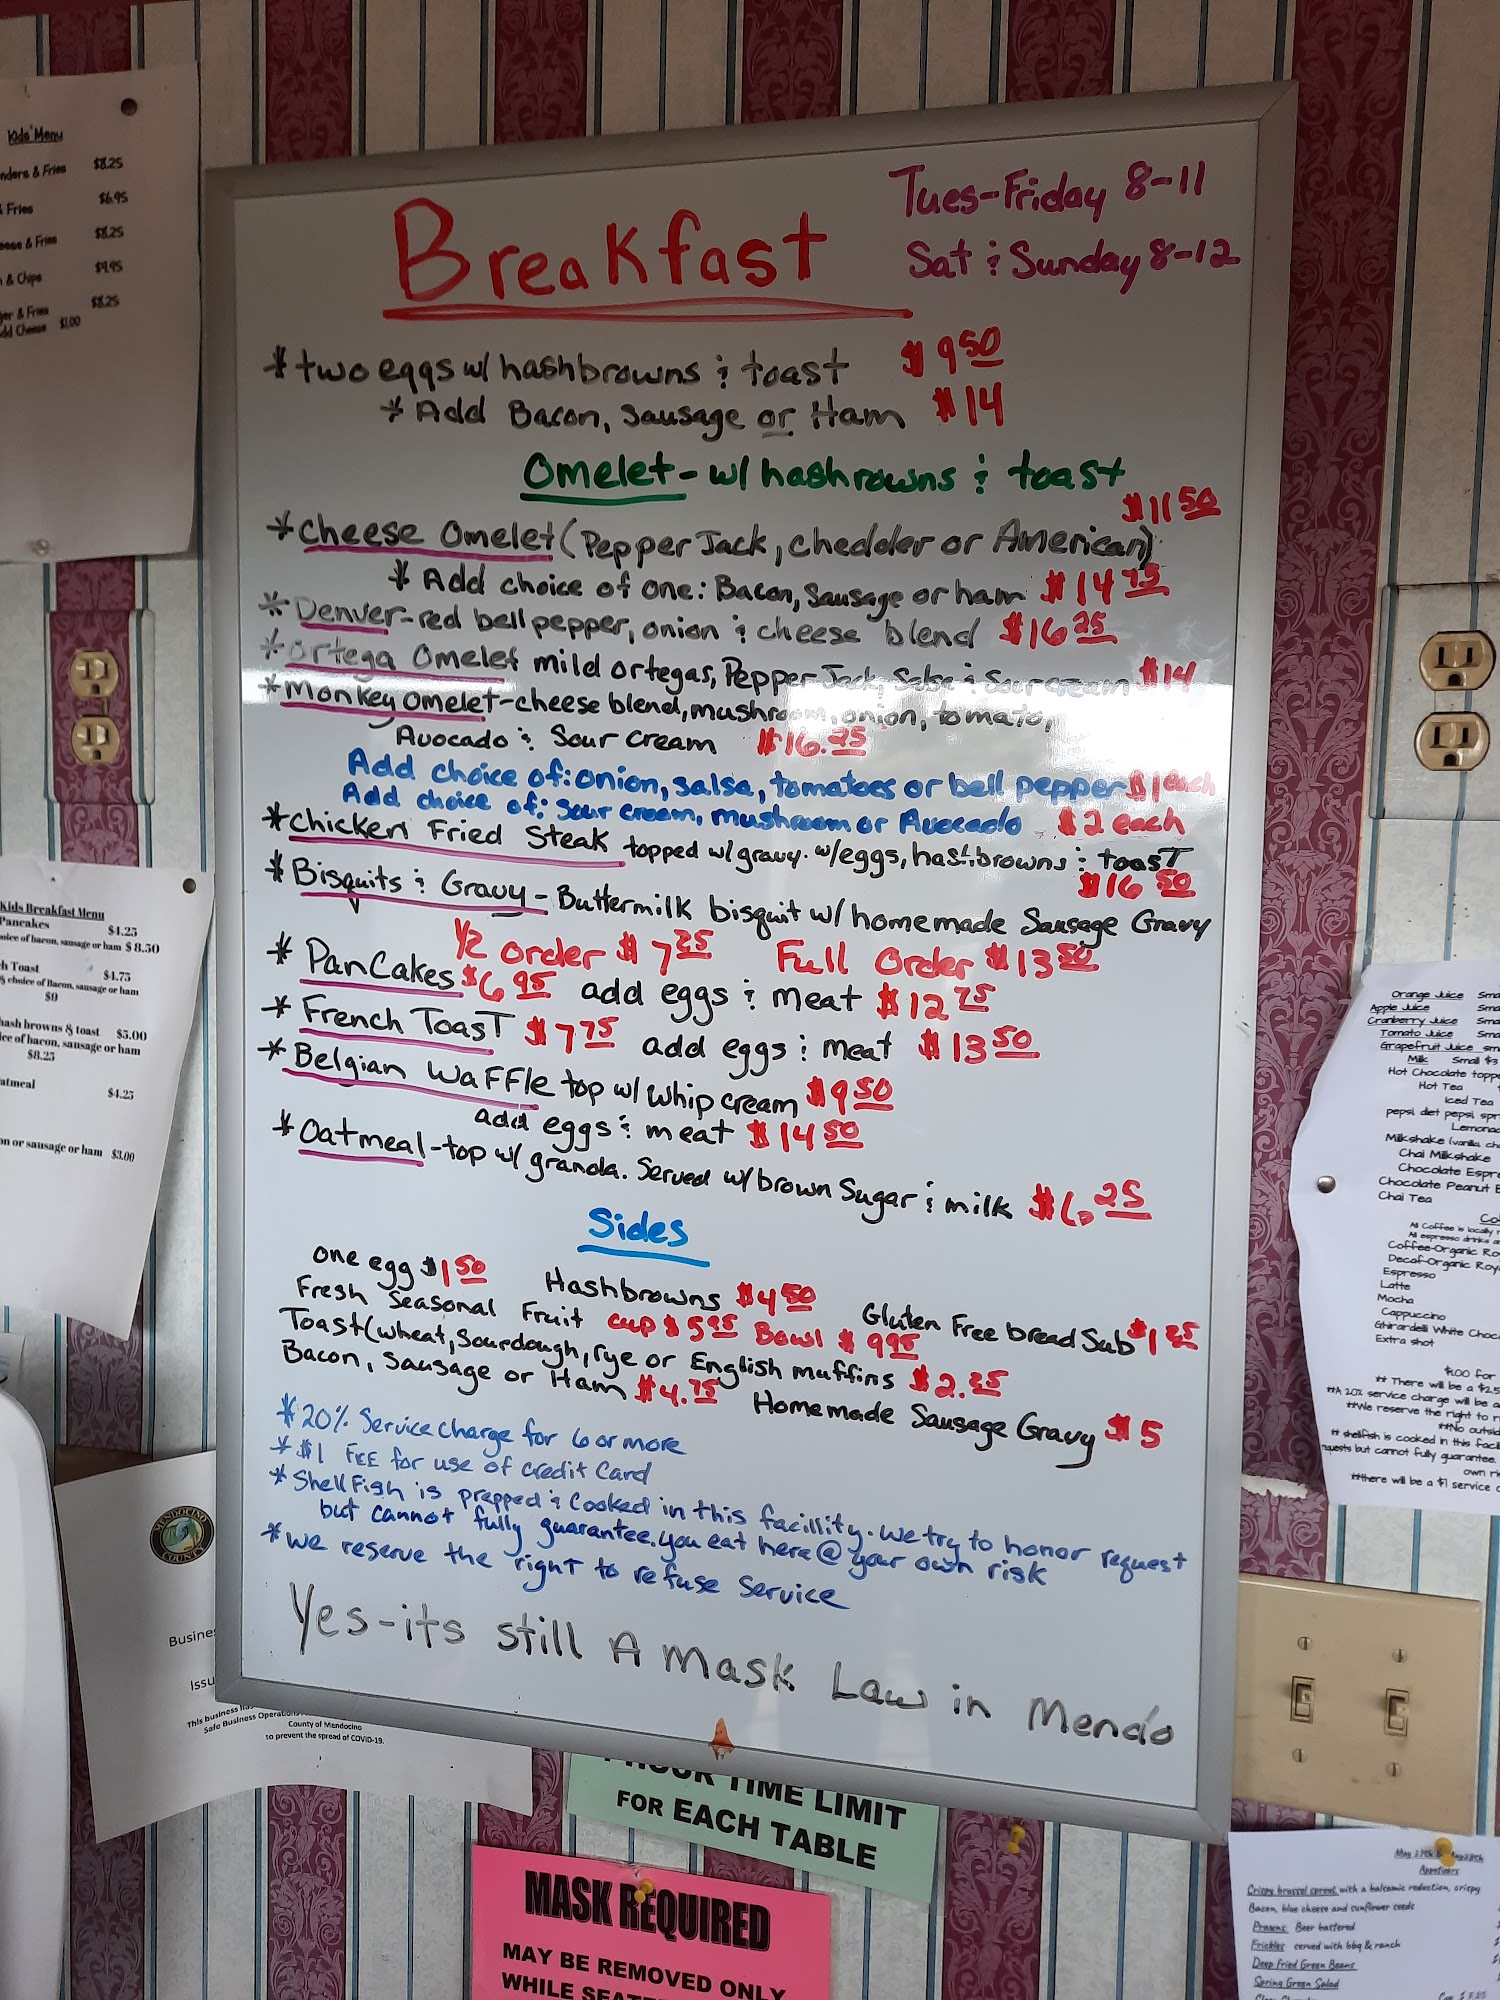 Breakfast
Tues-Friday 8-11
Sat & Sunday 8-12
* two eggs w/ hashbrowns & toast $9.50
* Add Bacon, Sausage or Ham $14
Omelet - w/ hashrowns & toast
$11.50
* Cheese Omelet (Pepper Jack, chedder or American)
* Add choice of one: Bacon, Sausage or ham $14.75
* Denver - red bell pepper, onion & cheese blend $16.25
* Ortega Omelet mild ortegas, Pepper Jack, Salsa & Sour cream $14
* Monkey omelet - cheese blend, mushroom, onion, tomato,
Avocado & Sour Cream $16.25
Add choice of: onion, salsa, tomatoes or bell pepper $1 each
Add choice of: sour cream, mushroom or Avocado $2 each
* Chicken Fried Steak topped w/ gravy. w/ eggs, hashbrowns & toast
$16.50
* Bisquits & Gravy - Buttermilk bisquit w/ homemade Sausage Gravy
1/2 order $7.25 Full Order $13.50
* Pancakes $6.95 add eggs & meat $12.75
* French Toast $7.75 add eggs & meat $13.50
* Belgian Waffle top w/ whip cream $9.50
add eggs & meat $14.50
* Oatmeal - top w/ granola. Served w/ brown Sugar & milk $6.25
Sides
one egg $1.50 Hashbrowns $4.50 Gluten Free bread Sub $1.25
Fresh Seasonal Fruit cup $5.95 Bowl $9.95
Toast (wheat, Sourdough, rye or English muffins $2.25
Bacon, Sausage or Ham $4.75 Homemade Sausage Gravy $5
* 20% Service Charge for 6 or more
* $1 FEE for use of credit Card
* ShellFish is prepped & Cooked in this facillity. we try to honor request
but cannot fully guarantee. you eat here @ your own risk
* we reserve the right to refuse service
Yes - its still A mask Law in Mendo
Kids' Menu
nders & Fries $8.25
& Fries $6.95
eese & Fries $8.25
& Chips $9.95
ger & Fries $8.25
dd Cheese $1.00
Kids Breakfast Menu
Pancakes $4.25
oice of bacon, sausage or ham $8.50
h Toast $4.75
choice of Bacon, sausage or ham
$9
hash browns & toast $5.00
ce of bacon, sausage or ham
$8.25
atmeal $4.25
on or sausage or ham $3.00
MENDOCINO
COUNTY
Busines
Issu
This business has
Safe Business Operatio
County of Mendocino
to prevent the spread of COVID-19.
HOUR TIME LIMIT
FOR EACH TABLE
MASK REQUIRED
MAY BE REMOVED ONLY
WHILE SEATE
Orange Juice Sma
Apple Juice Sma
Cranberry Juice Sma
Tomato Juice Sma
Grapefruit Juice sm
Milk Small $3
Hot Chocolate toppe
Hot Tea
Iced Tea
pepsi diet pepsi spr
Lemonad
Milkshake (vanilla, ch
Chai Milkshake
Chocolate Espr
Chocolate Peanut B
Chai Tea
Co
All Coffee is locally r
All espresso drinks a
Coffee-Organic Ro
Decaf-Organic Roy
Espresso
Latte
Mocha
Cappuccino
Ghirardelli White Choc
Extra shot
$1.00 for
** There will be a $2.5
**A 20% service charge will be a
**We reserve the right to r
**No outsid
** shellfish is cooked in this facil
quests but cannot fully guarantee.
own ri
**there will be a $1 service c
May 27th & May 28th
Appetizers
Crispy brussel sprout with a balsamic reduction, crispy
Bacon, blue cheese and sunflower seeds
Prawns Beer battered
Frickles served with bbq & ranch
Deep Fried Green Beans
Spring Green Salad